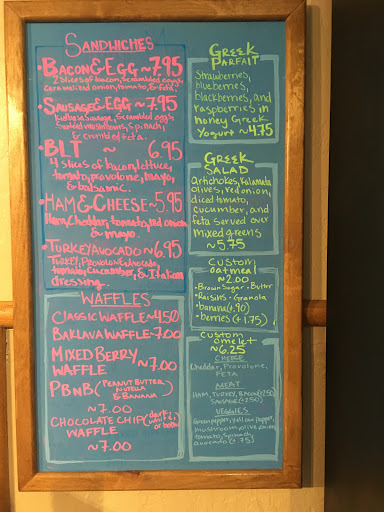 SANDWICHES
• BACON & EGG ~ 7.95
2 Slices of bacon, scrambled eggs
caramelized onion, tomato, & feta.
• SAUSAGE & EGG ~ 7.95
Kielbasa Sausage, Scrambled eggs
Sauteed mushrooms, Spinach,
& crumbled feta.
• BLT ~ 6.95
4 slices of bacon, lettuce,
tomato, provolone, mayo,
& balsamic.
• HAM & CHEESE ~ 5.95
Ham, Cheddar, tomato, red onion
& mayo.
• TURKEY AVOCADO ~ 6.95
Turkey, Provolone, avocado
tomato, cucumber, & Italian
dressing.
WAFFLES
CLASSIC WAFFLE ~ 4.50
BAKLAVA WAFFLE ~ 7.00
MIXED BERRY
WAFFLE ~ 7.00
PBNB (PEANUT BUTTER
NUTELLA
& BANANA)
~ 7.00
CHOCOLATE CHIP (dark,
white,
or both)
WAFFLE
~ 7.00
GREEK
PARFAIT
Strawberries,
blueberries,
blackberries, and
raspberries in
honey Greek
Yogurt ~ 4.75
GREEK
SALAD
Artichokes, Kalamata
olives, red onion,
diced tomato,
cucumber, and
feta served over
mixed greens
~ 5.75
Custom
oatmeal
~ 2.00
• Brown Sugar • Butter
• Raisins • Granola
• banana (+.90)
• berries (+1.75)
Custom
omelet
~ 6.25
CHEESE
Cheddar, Provolone,
FETA
MEAT
HAM, TURKEY, BACON (+2.50)
SAUSAGE (+2.50)
VEGGIES
Green pepper, yellow pepper,
mushroom, olive, onion,
tomato, spinach,
avocado (+.75)